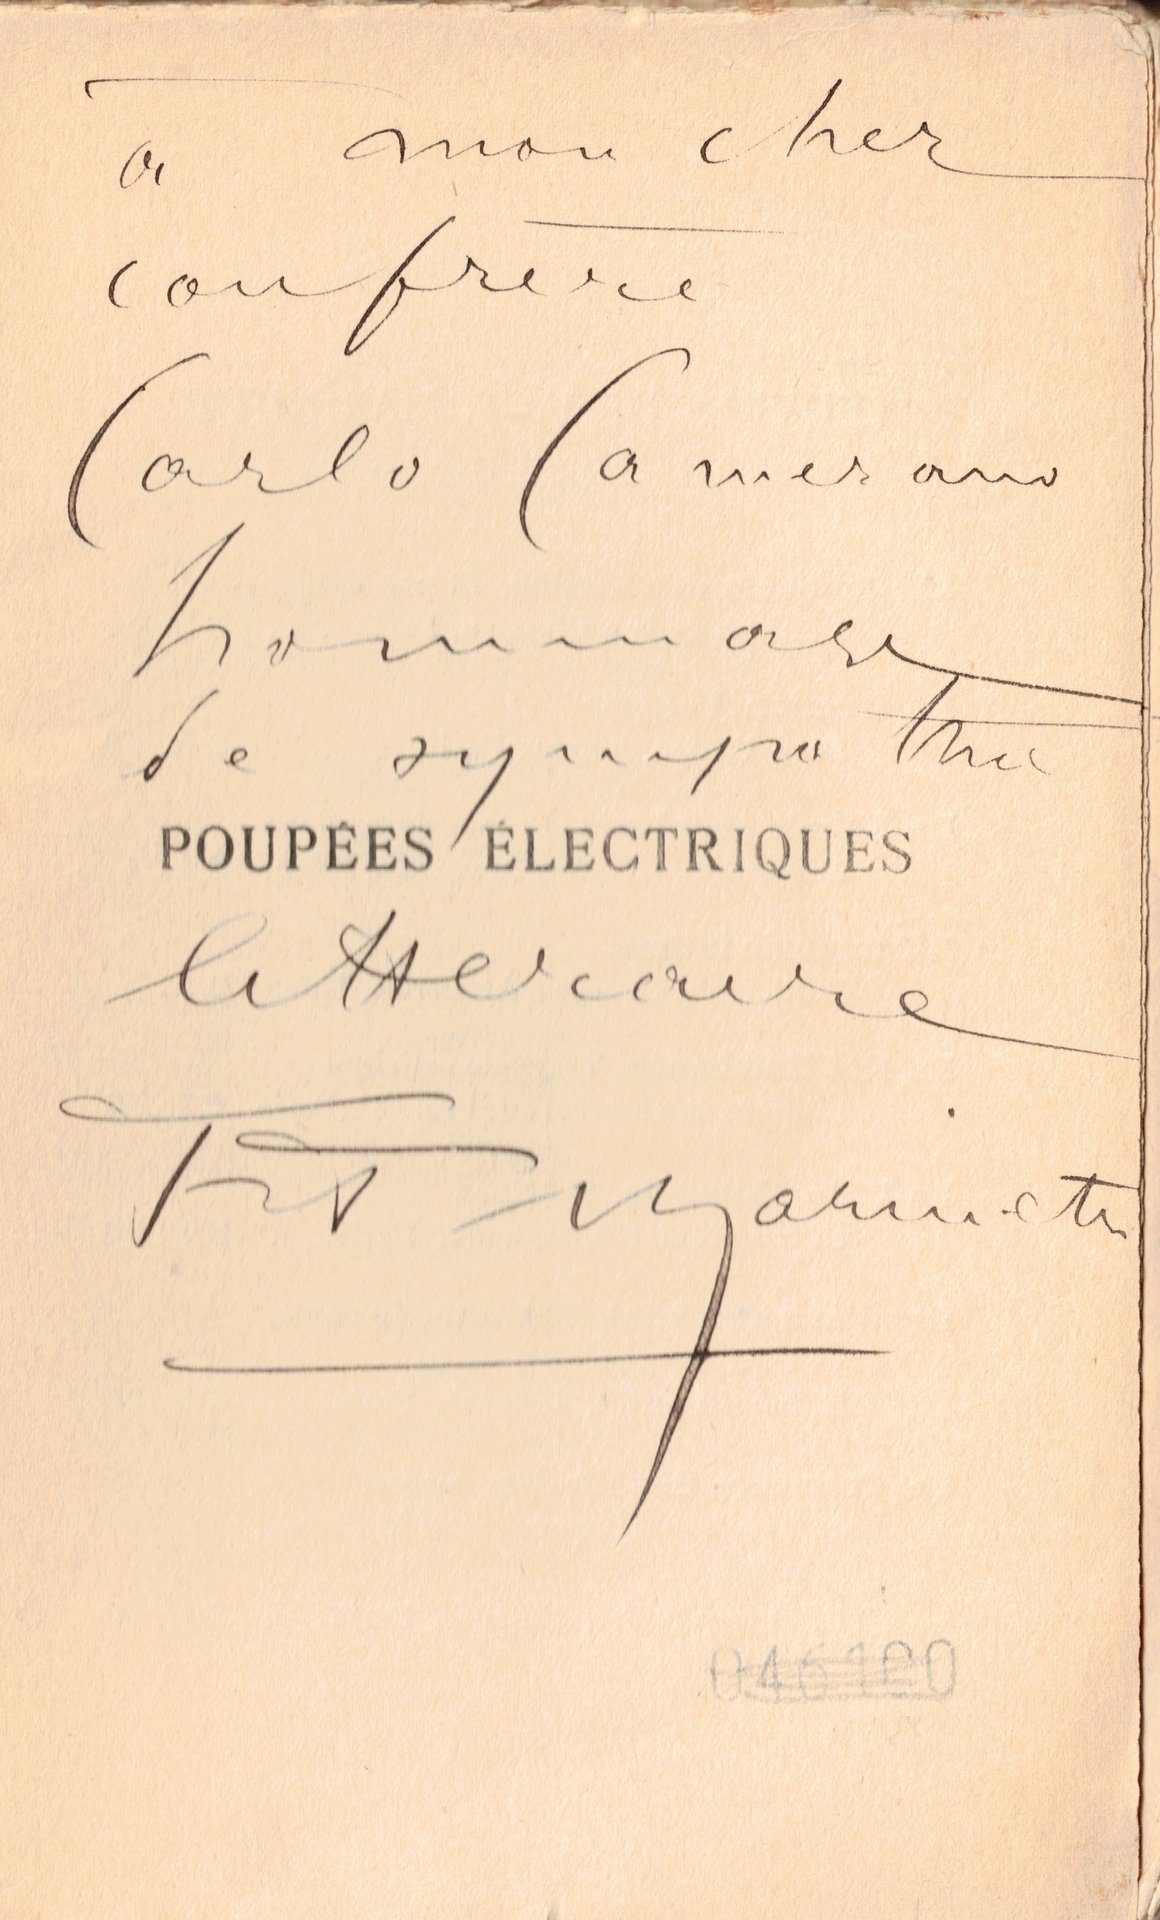 à mon cher
confrère
Carlo Camerano
hommage
de sympathie
POUPÉES ÉLECTRIQUES
littéraire
F T Marinetti
046100